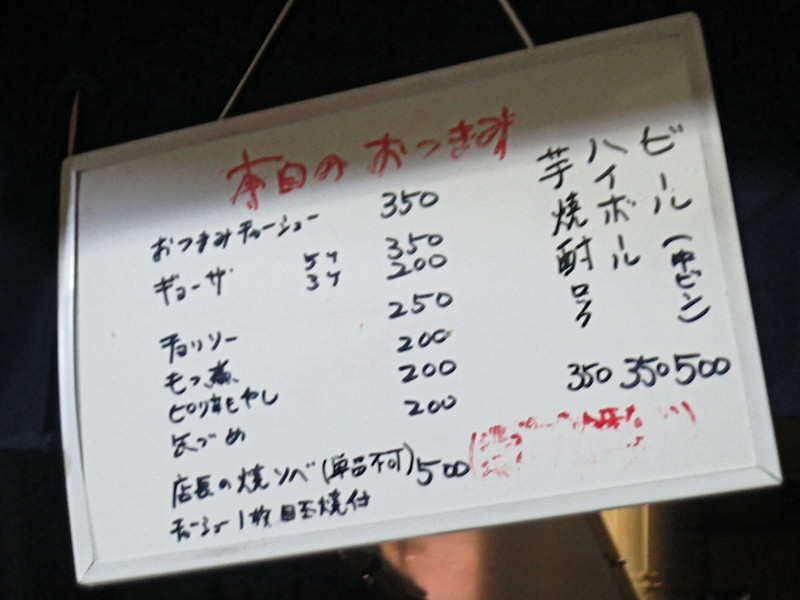 本日のおつまみ
おつまみチャーシュー 350
ギョーザ 5ケ 350
3ケ 200
チョリソー 250
もつ煮 200
ピリ辛もやし 200
200
店長の焼ソバ(単品不可) 500
チャーシュー1枚目玉焼付
ビール(中ビン) 500
ハイボール 350
芋焼酎ロック 350